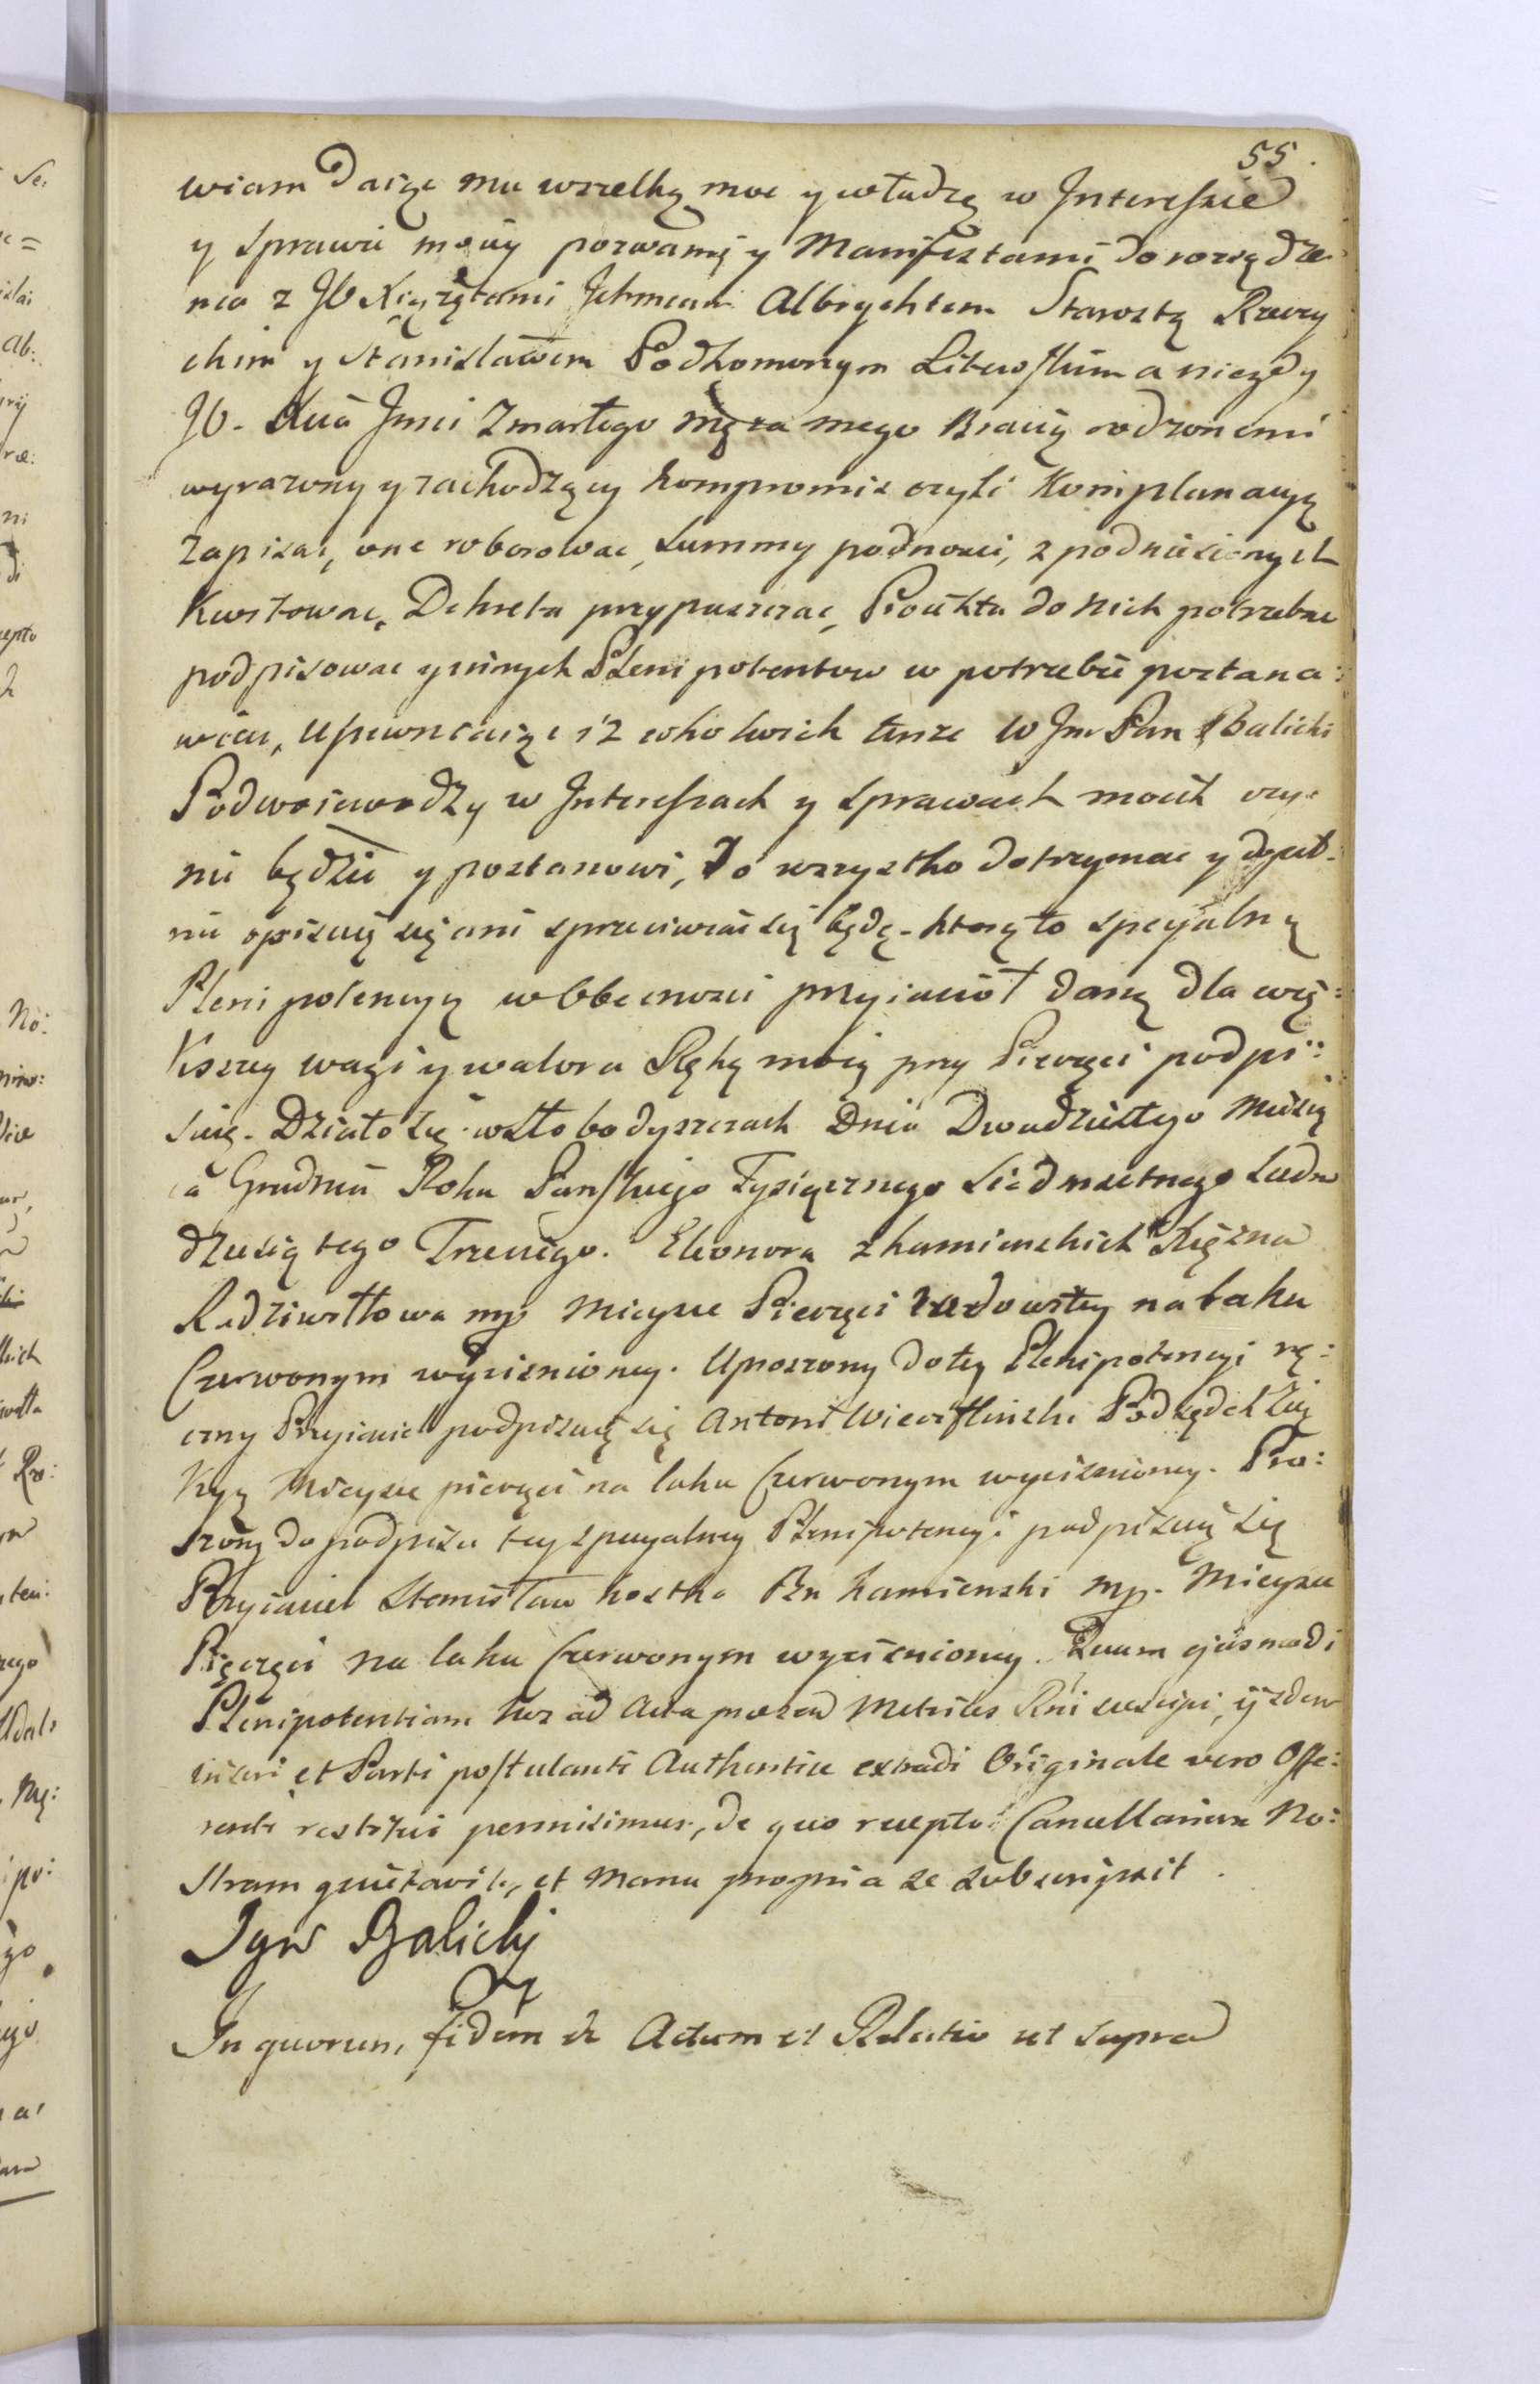 55.
wiam daiąc mu wszelką moc y władzę w Interessie
y sprawie moiey pozwami y Manifestami do rozsądze-
nia z JO Xiążętami Ichmciami Albrychtem Starostą Rzeczy
ckim y Stanisławem Podkomorzym Litewskim a niegdy
JO. Xcia Jmci Zmarłego męża mego Bracią rodzonemi
wyrażony y zachodzący kompromis czyli Komplanacyą
zapisać, one roborować, summy podnosić, z podniesionych
Kwitować, Dekreta przypuszczać, Produkta do nich potrzebne
podpisować y innych Plenipotentow w potrzebie postana:
wiać, upewniaiąc iż cokolwiek tenże W Jm Pan Balicki
Podwoiewodzy w Interessach y sprawach moich czy-
nić będzie y postanowi, to wszystko dotrzymać y dopeł-
nić opisuię się ani sprzeciwiać się będę - ktorą to specyalną
Plenipotencyą w obecności przyiacioł daną dla więk:
kszey wagi y waloru Ręką moią przy Pieczęci podpi:
suię. Działo się w Słobodyszczach Dnia Dwudziestego Miesią
ca Grudnia Roku Pańskiego Tysiącznego Siedmsetnego Siedm
dziesiątego Trzeciego. Eleonora z Kamienskich Xiężna
Radziwiłłowa mp Mieysce Pieczęci na laku
Czerwonym wyciśnioney. Uproszony do tey Plenipotencyi rę:
czny Przyiaciel podpisuię się Antoni Podsędek
Mieysce pieczęci na laku Czerwonym wyciśnioney. Pro:
szony do podpisu tey specyalney Plenipotencyi podpisuię się
Przyiaciel Stanisław Kostka Kamienski mp. Mieysce
Pieczęci na laku Czerwonym wyciśnioney. Quam ejusmodi
Plenipotentiam Nos ad Acta praesen Metrices Rni suscipi, ijsdem
inseri et Parti postulanti Authentice extradi Originale vero Offe:
renti restitui permisimus, de quo recepto Cancellariam No:
stram quietavit, et manu propria se subscripsit.
Ign Balicki
In quorum fidem &c Actum et Relatio ut supra